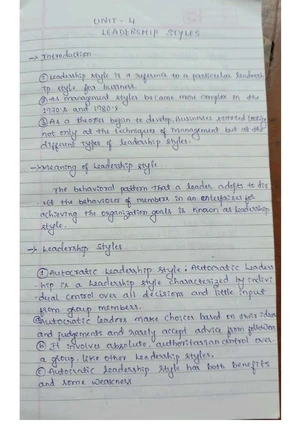 UNIT - 4
LEADERSHIP STYLES
→ Introduction
① Leadership style is a reference to a particular leadersh
ip style for business.
② As management styles became more complex in the
1970's and 1980's
③ As a theories began to develop, Businesses started looking
not only at the techniques of management but at the
different types of leadership styles.
→ Meaning of Leadership style
The behavioral pattern that a leader adopts to dir
ect the behaviours of members in an enterprises for
achieving the organization goals is known as leadership
style.
→ Leadership styles
① Autocratic Leadership style : Autocratic Leaders
hip is a Leadership style characterized by indivi
dual control over all decisions and little input
from group members.
ⓐ Autocratic leaders make choices based on their ideas
and judgements and rarely accept advice from followers
ⓑ It involves absolute, authoritarian control over
a group. like other Leadership styles,
ⓒ Autocratic Leadership style has both benefits
and some weakness